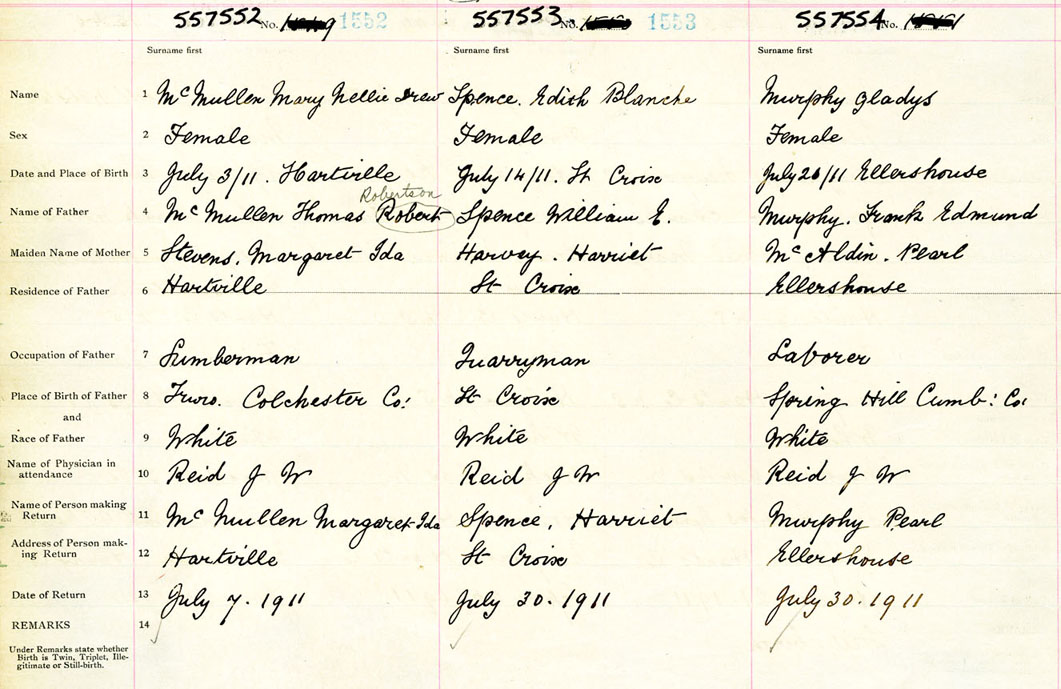 557552 No. 1552 557553 No. 1553 557554 No.
Surname first Surname first Surname first
Name 1 McMullen Mary Nellie Drew Spence. Edith Blanche Murphy Gladys
Sex 2 Female Female Female
Date and Place of Birth 3 July 3/11. Hartville July 14/11. St Croix July 20/11 Ellershouse
Robertson
Name of Father 4 McMullen Thomas Robert Spence William E. Murphy. Frank Edmund
Maiden Name of Mother 5 Stevens. Margaret Ida Harvey. Harriet McAldin. Pearl
Residence of Father 6 Hartville St Croix Ellershouse
Occupation of Father 7 Lumberman Quarryman Laborer
Place of Birth of Father 8 Truro. Colchester Co: St Croix Spring Hill Cumb: Co:
and
Race of Father 9 White White White
Name of Physician in
attendance 10 Reid J W Reid J W Reid J W
Name of Person making
Return 11 McMullen Margaret Ida Spence, Harriet Murphy Pearl
Address of Person mak-
ing Return 12 Hartville St Croix Ellershouse
Date of Return 13 July 7. 1911 July 30. 1911 July 30. 1911
REMARKS 14
Under Remarks state whether
Birth is Twin, Triplet, Ille-
gitimate or Still-birth.